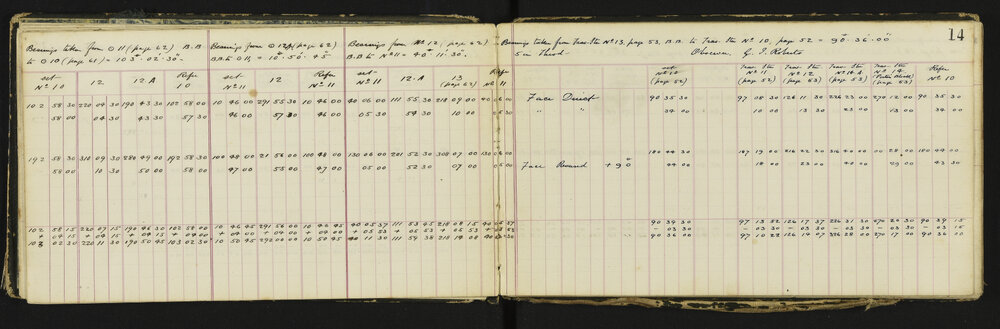 14
Bearings taken from ⊙ 11 (page 62) B.B.
to ⊙ 10 (page 61) = 103° 02' 30"
set Nº 10 12 12 A Refer 10
102 58 30 220 04 30 190 43 30 102 58 00
58 00 04 30 43 30 57 30
192 58 30 310 09 30 280 49 00 192 58 30
58 00 10 30 50 00 58 00
102 58 15 220 07 15 190 46 30 102 58 00
+ 04 15 + 04 15 + 04 15 + 04 30
103 02 30 220 11 30 190 50 45 103 02 30
Bearings from ⊙ 12A (page 62)
B.B. to ⊙ 11, = 10° 50' 45"
set Nº 11 12 Refer Nº 11
10 46 00 291 55 30 10 46 00
46 00 57 30 46 00
100 48 00 21 56 00 100 48 00
47 00 55 00 47 00
10 46 45 291 56 00 10 46 45
+ 04 00 + 04 00 + 04 00
10 50 45 292 00 00 10 50 45
Bearings from Nº 12 (page 62)
B.B. to Nº 11 = 40° 11' 30"
set Nº 11 12.A 13 (page 62) Refer Nº 11
40 06 00 111 55 30 218 09 00 40 06 00
05 30 54 30 10 00 05 30
130 06 00 201 52 30 308 07 00 130 06 00
05 00 52 30 07 00 05 00
40 05 37 111 53 45 218 08 15 40 05 37
+ 05 53 + 05 53 + 05 53 + 05 53
40 11 30 111 59 38 218 14 08 40 11 30
Bearings taken from Trav. Stn Nº 13, page 53, B.B. to Trav. Stn Nº 10, page 52 = 90° 36' 00"
5 in Theod. Observer G. J. Roberts
set Nº 10 (page 52) Trav. Stn Nº 11 (page 52) Trav. Stn Nº 12 (page 52) Trav. Stn Nº 14 A (page 53) Trav. Stn Nº 14 (page 53) Refer Nº 10
Face Direct 90 35 30 97 08 30 126 11 30 226 23 00 270 12 00 90 35 30
" " 34 00 10 00 13 30 23 00 13 00 34 00
180 44 30 187 19 00 216 22 30 316 40 00 00 28 00 180 44 00
Face Round + 90° 44 00 18 00 23 00 40 00 29 00 43 30
90 39 30 97 13 52 126 17 37 226 31 30 270 20 30 90 39 15
- 03 30 - 03 30 - 03 30 - 03 30 - 03 30 - 03 15
90 36 00 97 10 22 126 14 07 226 28 00 270 17 00 90 36 00